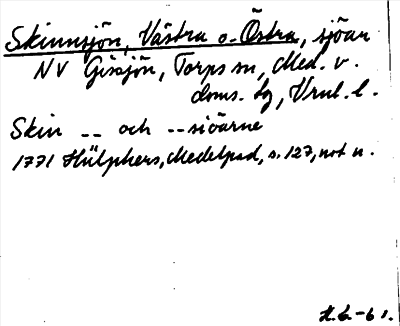 Skinnsjön, Västra o. Östra, sjöar
NV Gissjön, Torps sn, Med. v.
doms. tg, Vrnl. l.
Skin -- och -- siöarne
1771 Hülphers, Medelpad, s. 127, not n.
H.G-61.